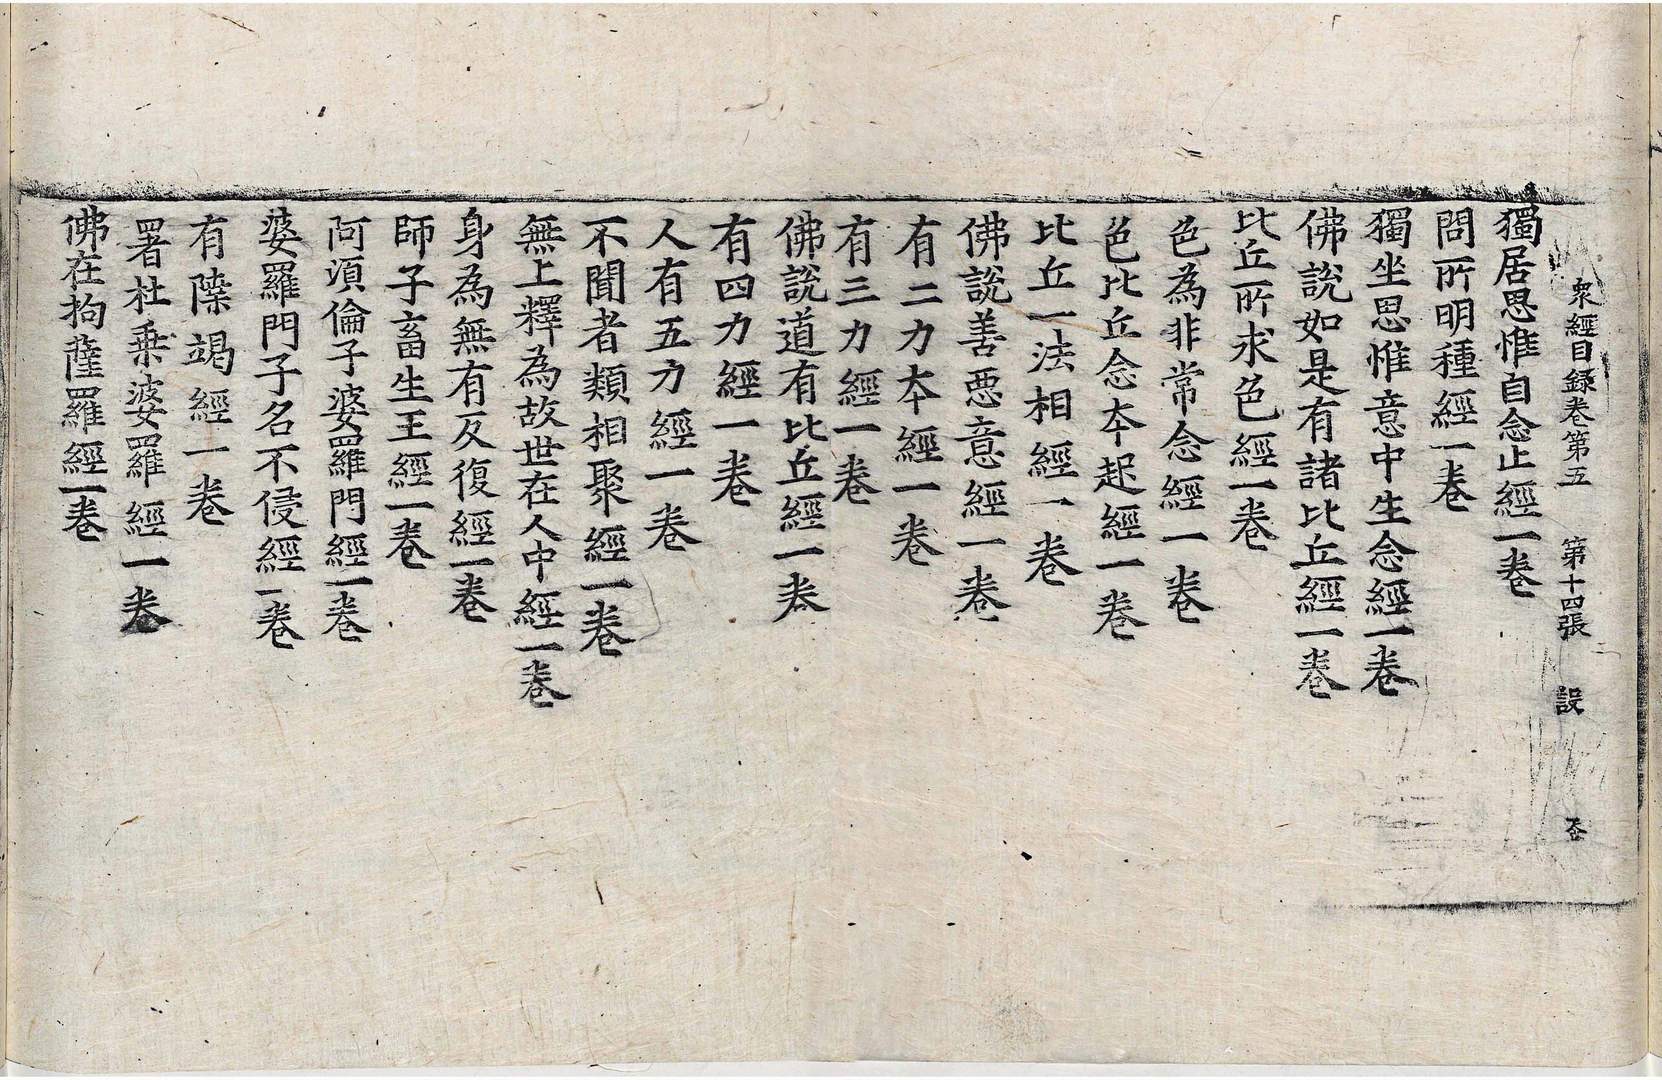 衆經目録卷第五 第十四張 設
獨居思惟自念止經一卷
問所明種經一卷
獨坐思惟意中生念經一卷
佛說如是有諸比丘經一卷
比丘所求色經一卷
色為非常念經一卷
色比丘念本起經一卷
比丘一法相經一卷
佛說善惡意經一卷
有二力本經一卷
有三力經一卷
佛說道有比丘經一卷
有四力經一卷
人有五力經一卷
不聞者類相聚經一卷
無上釋為故世在人中經一卷
身為無有反復經一卷
師子畜生王經一卷
阿湏倫子婆羅門經一卷
婆羅門子名不侵經一卷
有隓竭經一卷
署杜乗婆羅經一卷
佛在拘薩羅經一卷